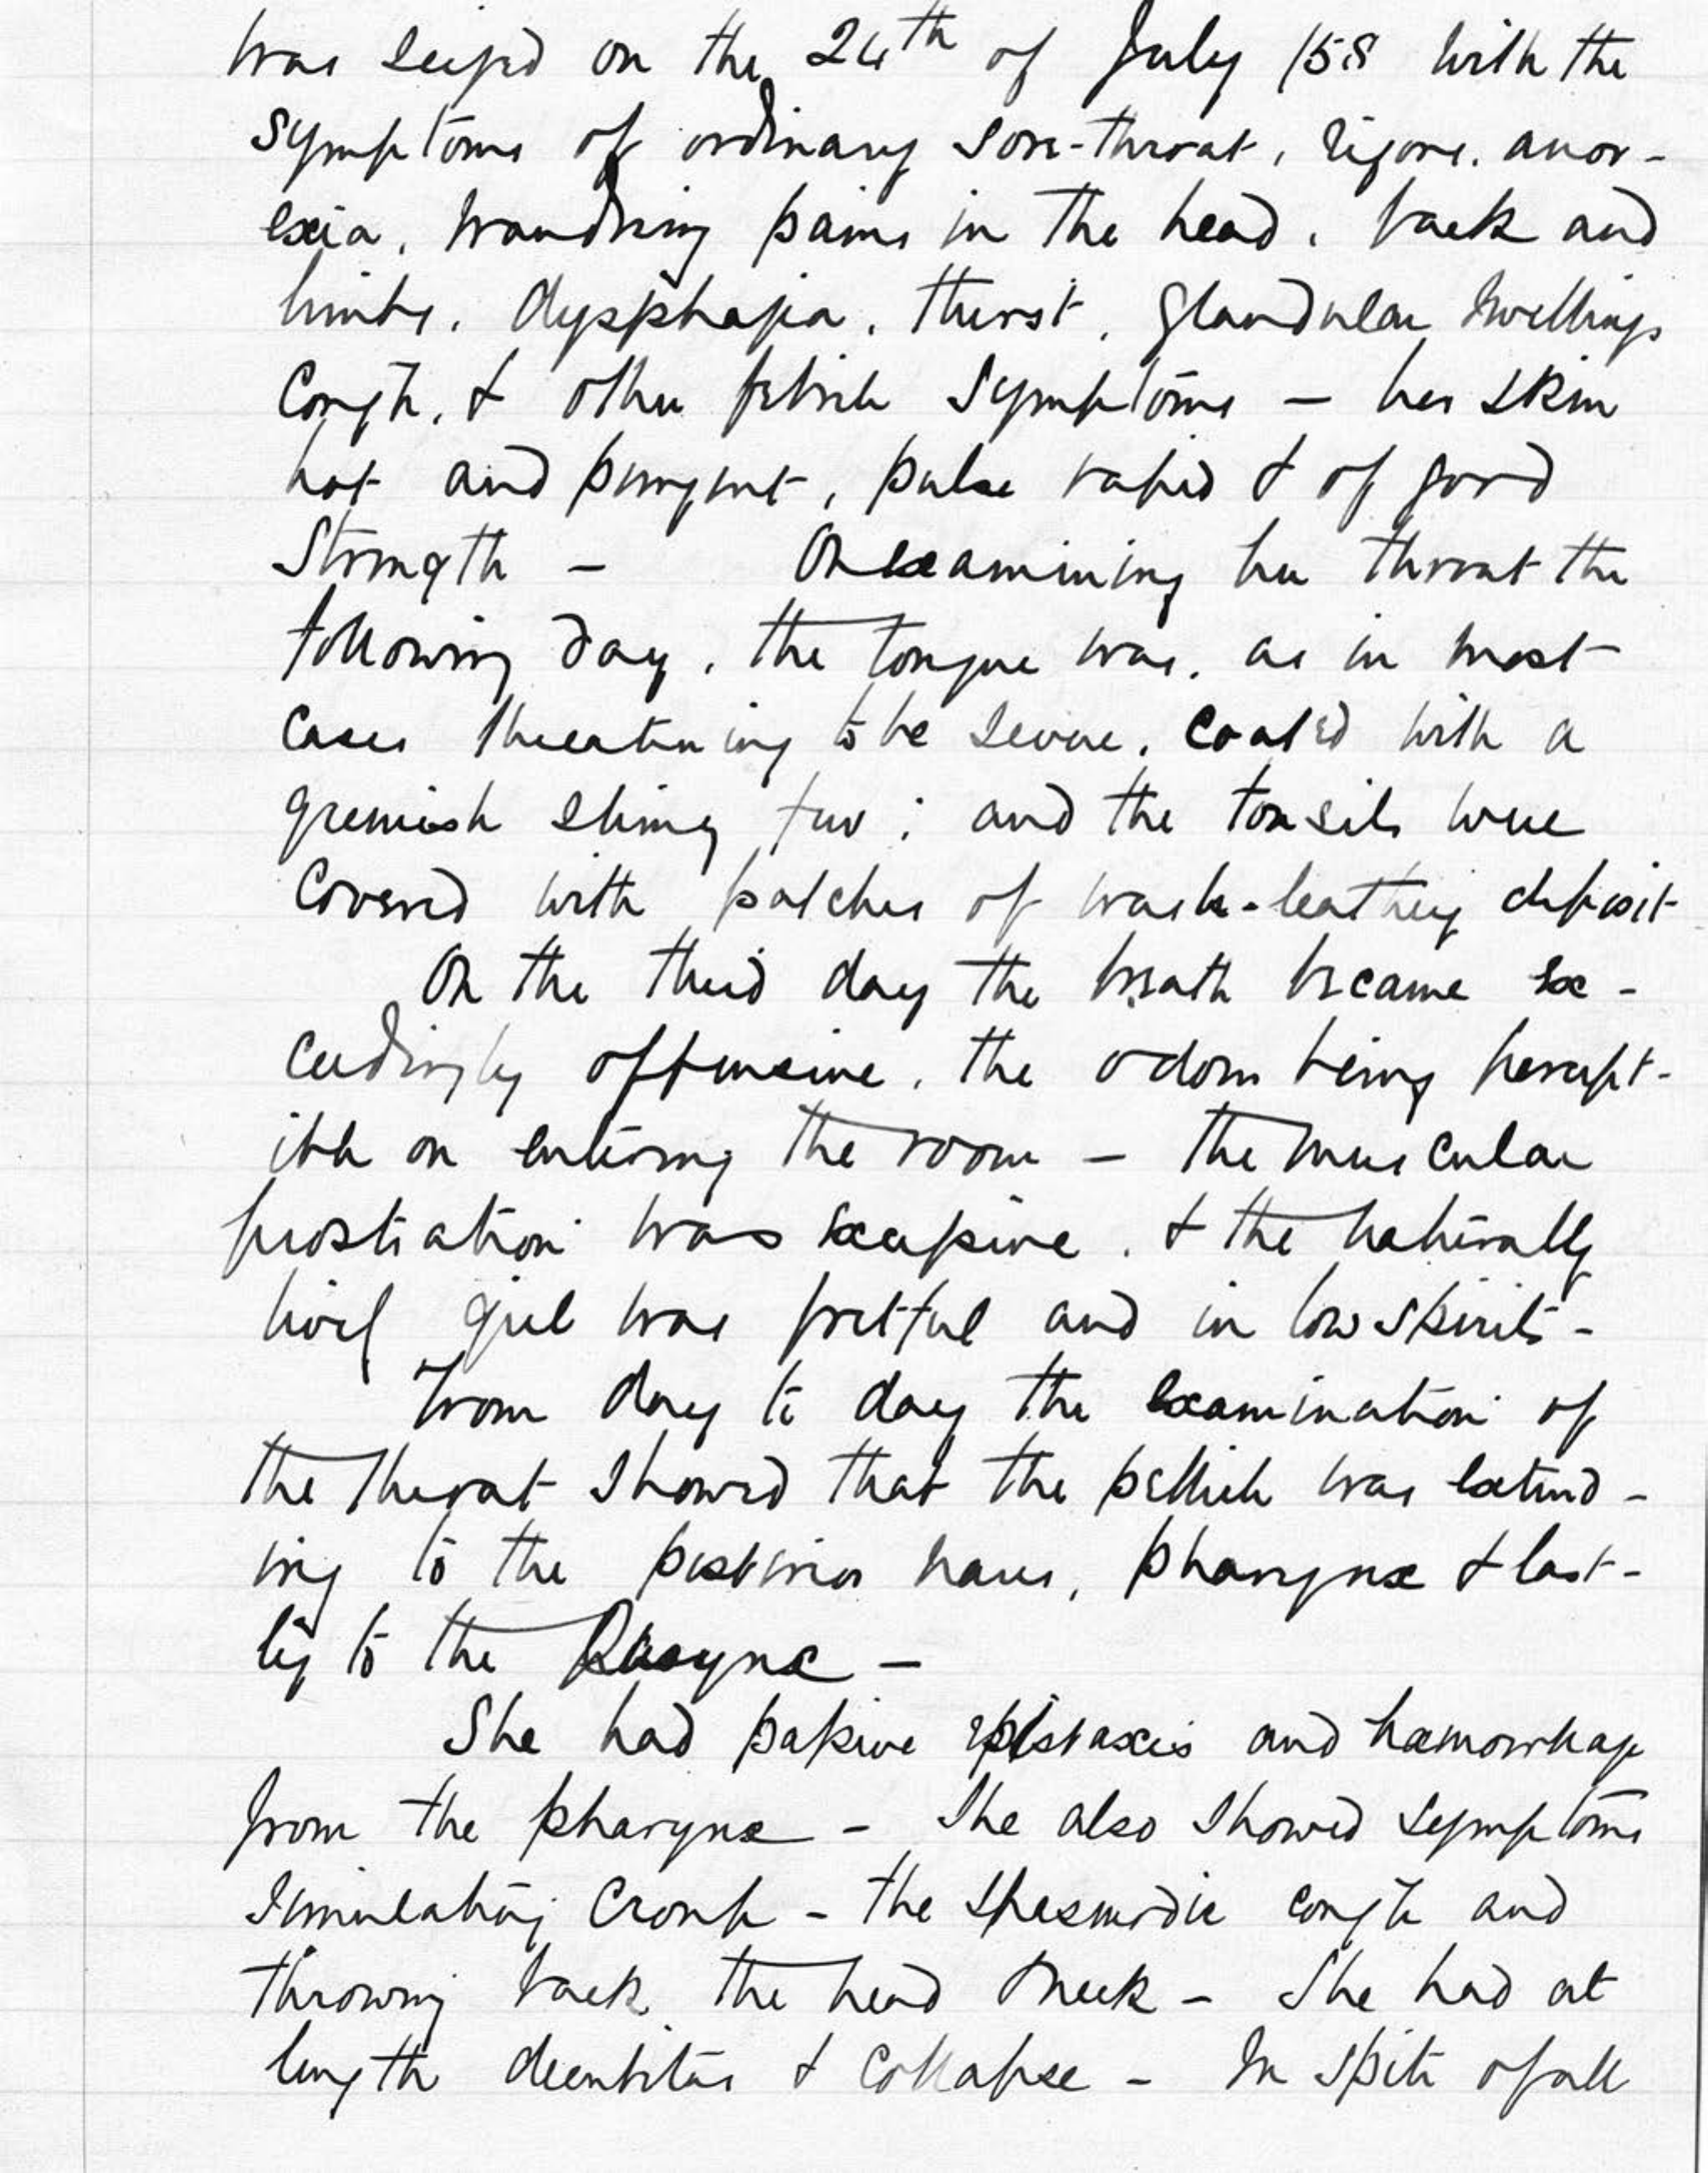 was seized on the 24th of July /58 with the
symptoms of ordinary sore-throat, rigors, anor-
exia, wandring pains in the head, back and
limbs, dysphagia, thirst, glandular swellings
Cough, & other febrile symptoms – her skin
hot and pungent, pulse rapid & of good
Strength – On examining her throat the
following day, the tongue was, as in most
cases threatening to be severe, coated with a
greenish slimy fur; and the tonsils were
Covered with patches of wash-leathery deposit
On the third day the breath became ex-
ceedingly offensive, the odour being percept-
ible on entering the room – the muscular
prostration was excessive, & the naturally
girl was fretful and in low spirits –
From day to day the examination of
the throat showed that the pellicle was extend-
ing to the posterior nares, pharynx & last-
ly to the Larynx –
She had passive epistaxis and hæmorrhage
from the pharynx – She also showed symptoms
simulating Croup – the spasmodic cough and
throwing back the head & neck – She had at
length decubitus & Collapse – In spite of all